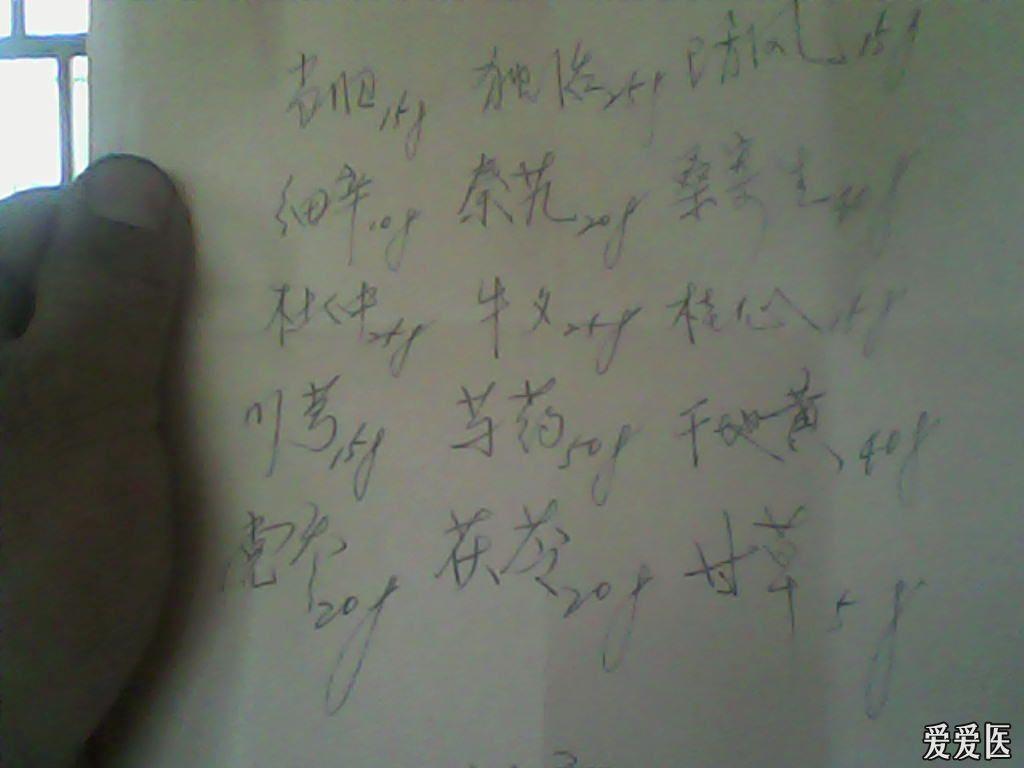 当归15g 独活25g 防风15g
细辛10g 秦艽20g 桑寄生40g
杜仲25g 牛夕25g 桂心15g
川芎15g 芍药50g 干地黄40g
党参20g 茯苓20g 甘草5g
爱爱医